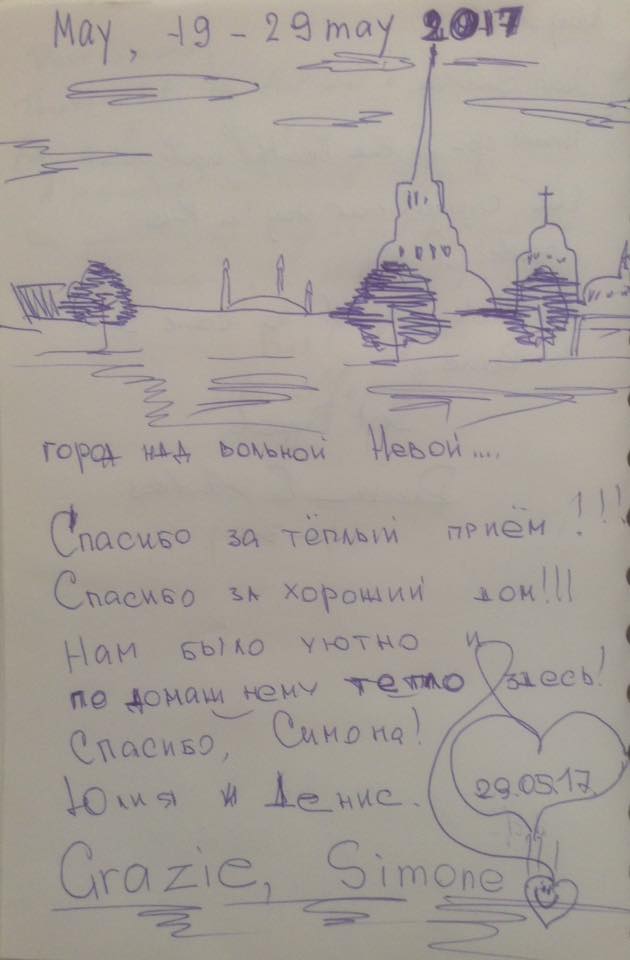 May, 19 - 29 may 2017
город над вольной Невой....
Спасибо за тёплый приём!!!
Спасибо за хороший дом!!!
Нам было уютно и
по домашнему тепло здесь!
Спасибо, Симона!
29.05.17
Юлия и Денис.
Grazie, Simone